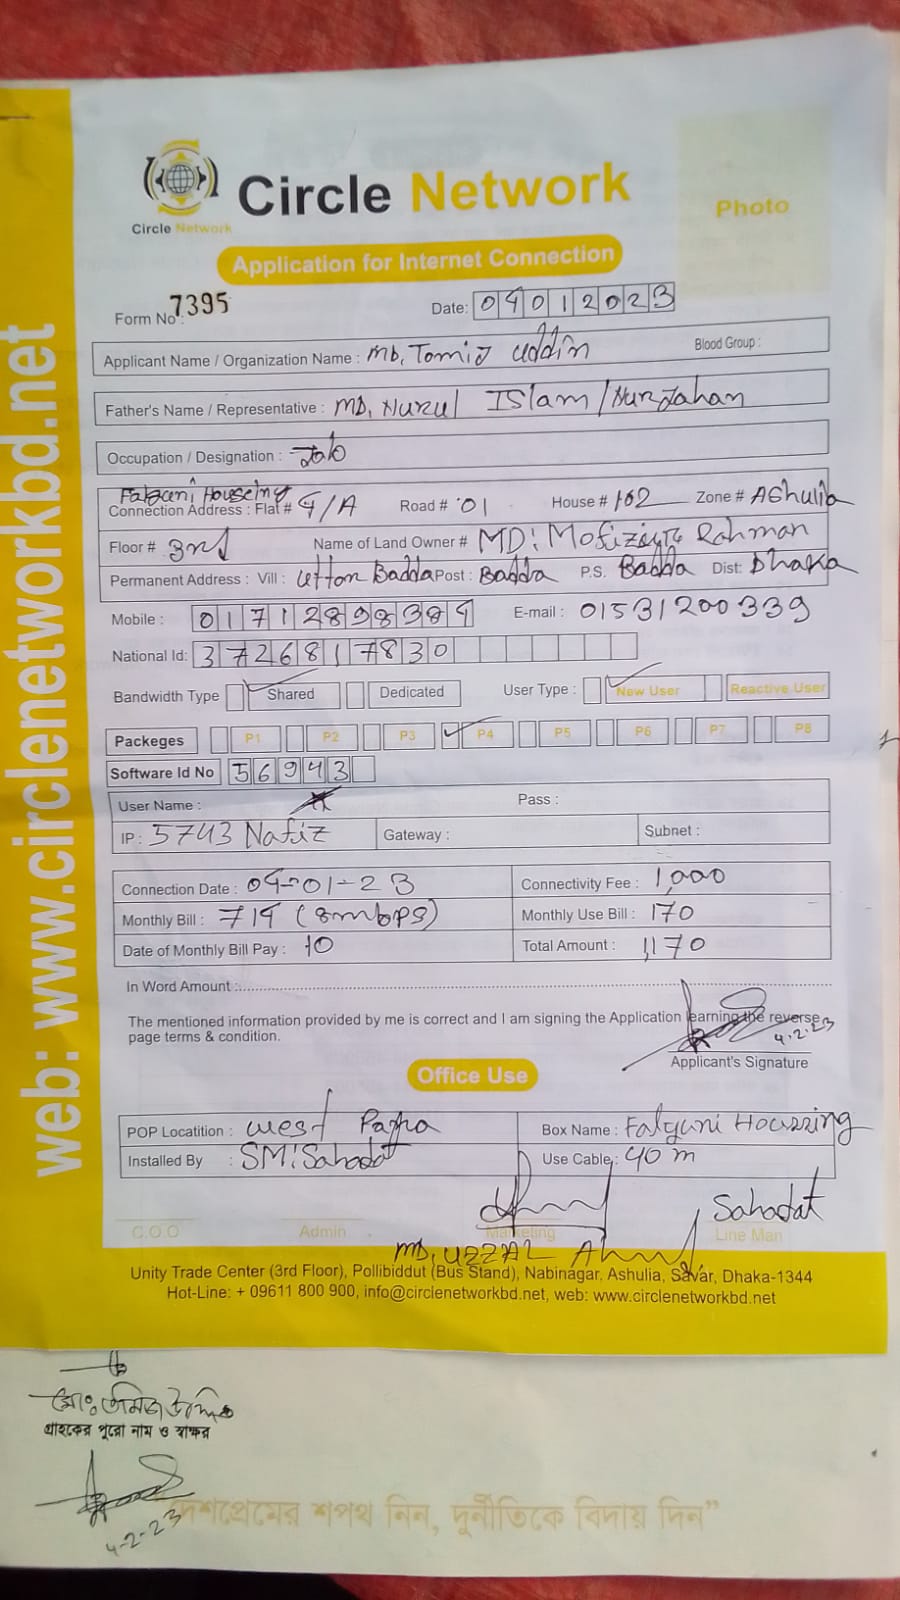 web: www.circlenetworkbd.net
Circle Network
Circle Network
Photo
Application for Internet Connection
Form No : 7395 Date: 04012023
Applicant Name / Organization Name : MD. Tomiz Uddin Blood Group :
Father's Name / Representative : MD. Nurul Islam/Nurjahan
Occupation / Designation : Job
Falguni Houseing
Connection Address : Flat # 4/A Road # 01 House # 102 Zone # Ashulia
Floor # 3rd Name of Land Owner # MD: Mofizur Rahman
Permanent Address : Vill : Utton Badda Post : Badda P.S. Badda Dist: Dhaka
Mobile : 01712898384 E-mail : 01531200339
National Id: 3726817830
Bandwidth Type Shared Dedicated User Type : New User Reactive User
Packeges P1 P2 P3 P4 P5 P6 P7 P8
Software Id No 56943
User Name : Pass :
IP : 5743 Nafiz Gateway : Subnet :
Connection Date : 04-01-23 Connectivity Fee : 1,000
Monthly Bill : 714 (8mbps) Monthly Use Bill : 170
Date of Monthly Bill Pay : 10 Total Amount : 1,170
In Word Amount :
The mentioned information provided by me is correct and I am signing the Application learning the reverse
page terms & condition.
4.2.23
Applicant's Signature
Office Use
POP Locatition : West Box Name : Falguni Houssing
Installed By : SM: Sahadat Use Cable : 40 m
Sahadat
C.O.O Admin Marketing Line Man
MD. UZZAL
Unity Trade Center (3rd Floor), Pollibiddut (Bus Stand), Nabinagar, Ashulia, Savar, Dhaka-1344
Hot-Line: + 09611 800 900, info@circlenetworkbd.net, web: www.circlenetworkbd.net
মোঃ তমিজ উদ্দিন
গ্রাহকের পুরো নাম ও স্বাক্ষর
দেশপ্রেমের শপথ নিন, দুর্নীতিকে বিদায় দিন”
4-2-23